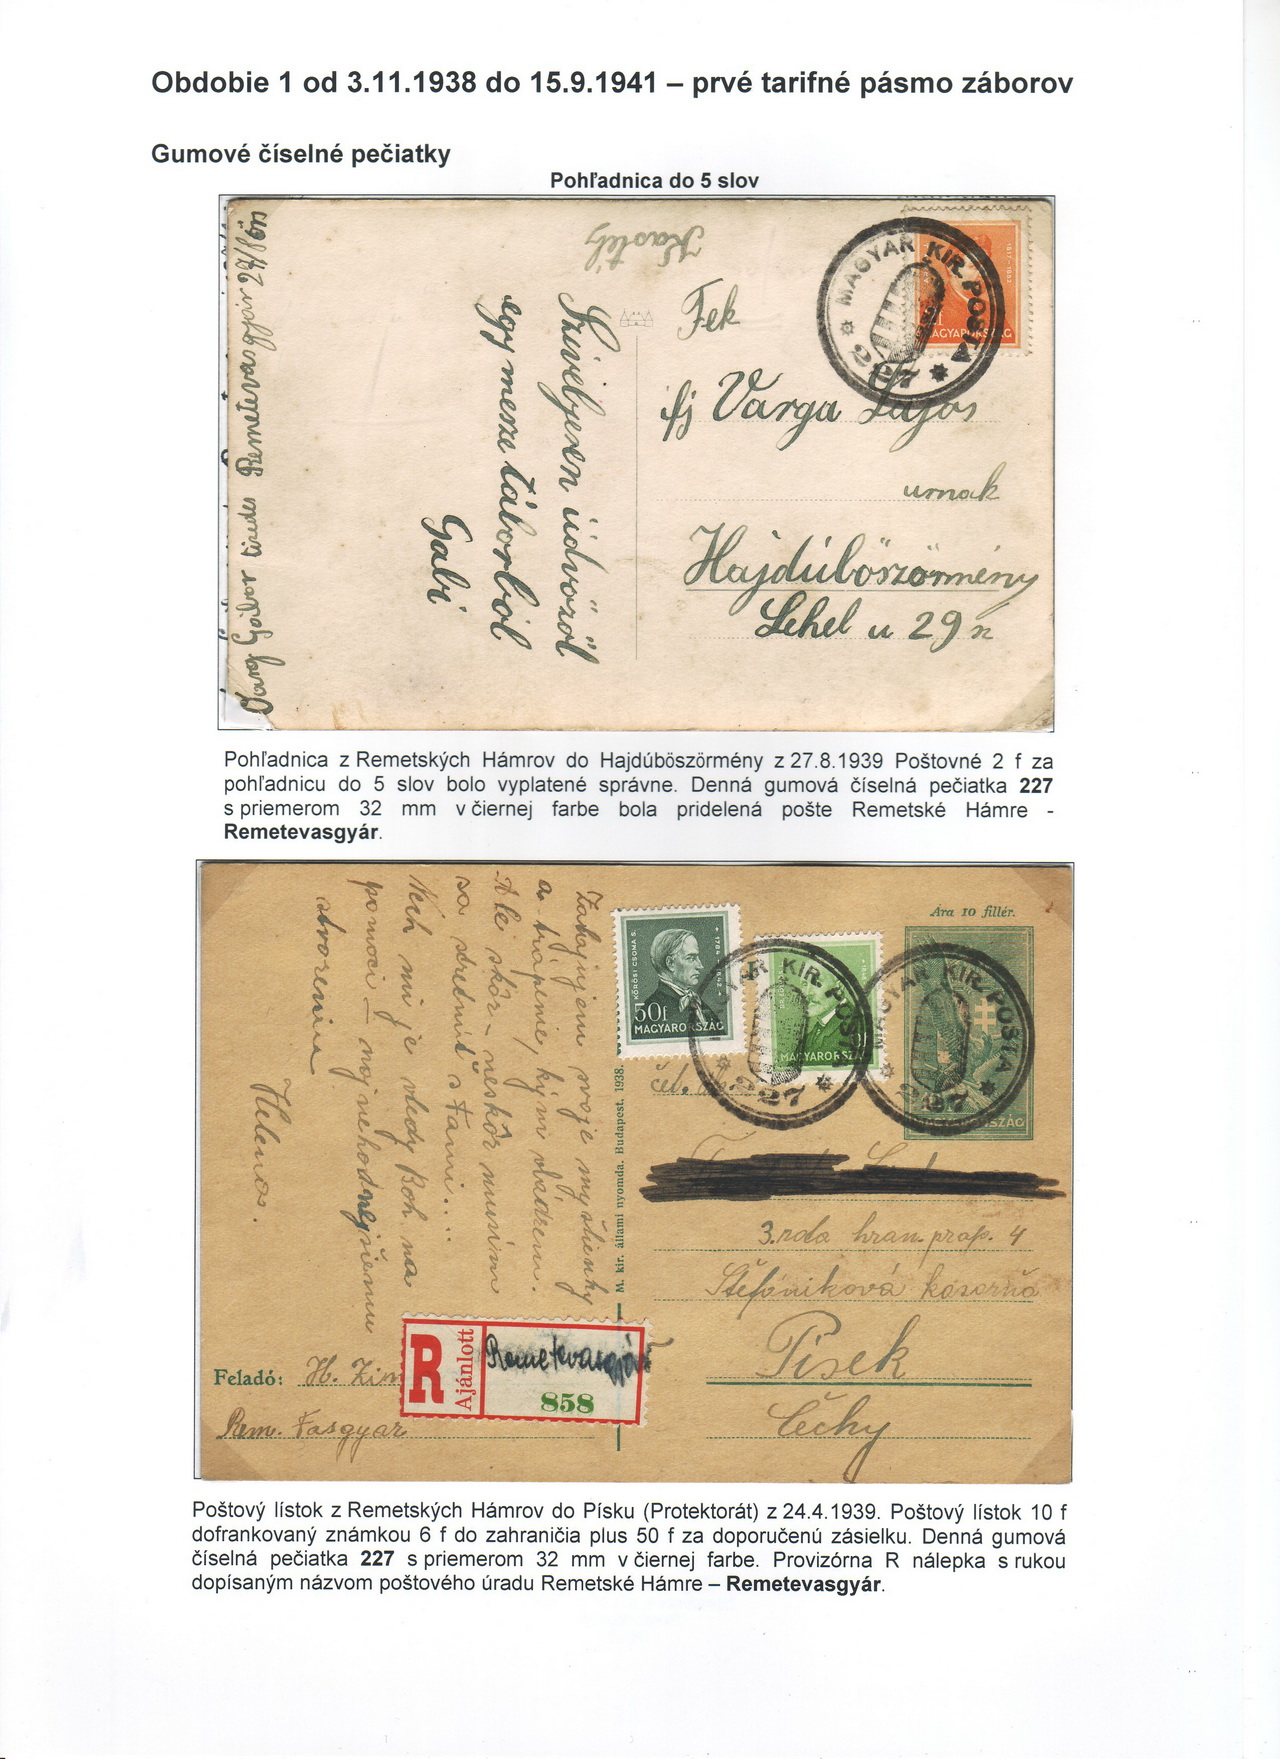 Obdobie 1 od 3.11.1938 do 15.9.1941 – prvé tarifné pásmo záborov
Gumové číselné pečiatky
Pohľadnica do 5 slov
Kastély
Szivélyesen üdvözöl
egy messze táborból
Gabi
Gábor tizedes Remetevasgyár 27/8
MAGYAR KIR. POSTA
227
MAGYARORSZÁG
Fek
ifj Varga Lajos
urnak
Hajdúböszörmény
Lehel u 29 sz
Pohľadnica z Remetských Hámrov do Hajdúböszörmény z 27.8.1939 Poštovné 2 f za
pohľadnicu do 5 slov bolo vyplatené správne. Denná gumová číselná pečiatka 227
s priemerom 32 mm v čiernej farbe bola pridelená pošte Remetské Hámre -
Remetevasgyár.
Zahajujem svoje myšlienky
a trápenie, kým vládzem.
Ale skôr – neskôr musím
sa stretnúť s Vami...
Nech mi je vtedy Boh na
pomoci – najnehodnejšiemu
stvoreniu
Helena.
KŐRÖSI CSOMA S. 1784-1842
50f
MAGYARORSZÁG
MAGYARORSZÁG
Ára 10 fillér.
KIR. POSTA
227
MAGYAR KIR. POSTA
227
MAGYARORSZÁG
M. kir. állami nyomda. Budapest. 1938.
čat.
3. rota hran. prap. 4
Štefániková kasarňa
Písek
Čechy
R
Ajánlott
Remetevasgyár
858
Feladó: H. Zim
Rem. Vasgyar
Poštový lístok z Remetských Hámrov do Písku (Protektorát) z 24.4.1939. Poštový lístok 10 f
dofrankovaný známkou 6 f do zahraničia plus 50 f za doporučenú zásielku. Denná gumová
číselná pečiatka 227 s priemerom 32 mm v čiernej farbe. Provizórna R nálepka s rukou
dopísaným názvom poštového úradu Remetské Hámre – Remetevasgyár.